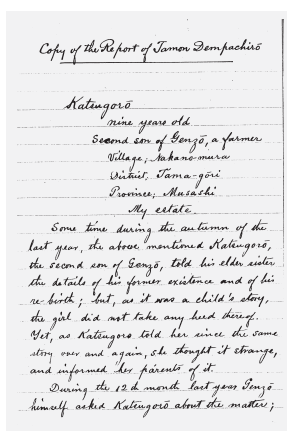 Copy of the Report of Tamon Dempachirō
Katsugorō
nine years old
Second son of Genzō, a farmer
Village; Nakano-mura
District, Tama-gōri
Province; Musashi
My estate.
Some time during the autumn of the
last year, the above mentioned Katsugorō,
the second son of Genzō, told his elder sister
the details of his former existence and of his
re-birth; but, as it was a child's story,
the girl did not take any heed thereof.
Yet, as Katsugoro told her since the same
story over and again, she thought it strange,
and informed her parents of it.
During the 12th month last year Genzō
himself asked Katsugorō about the matter;